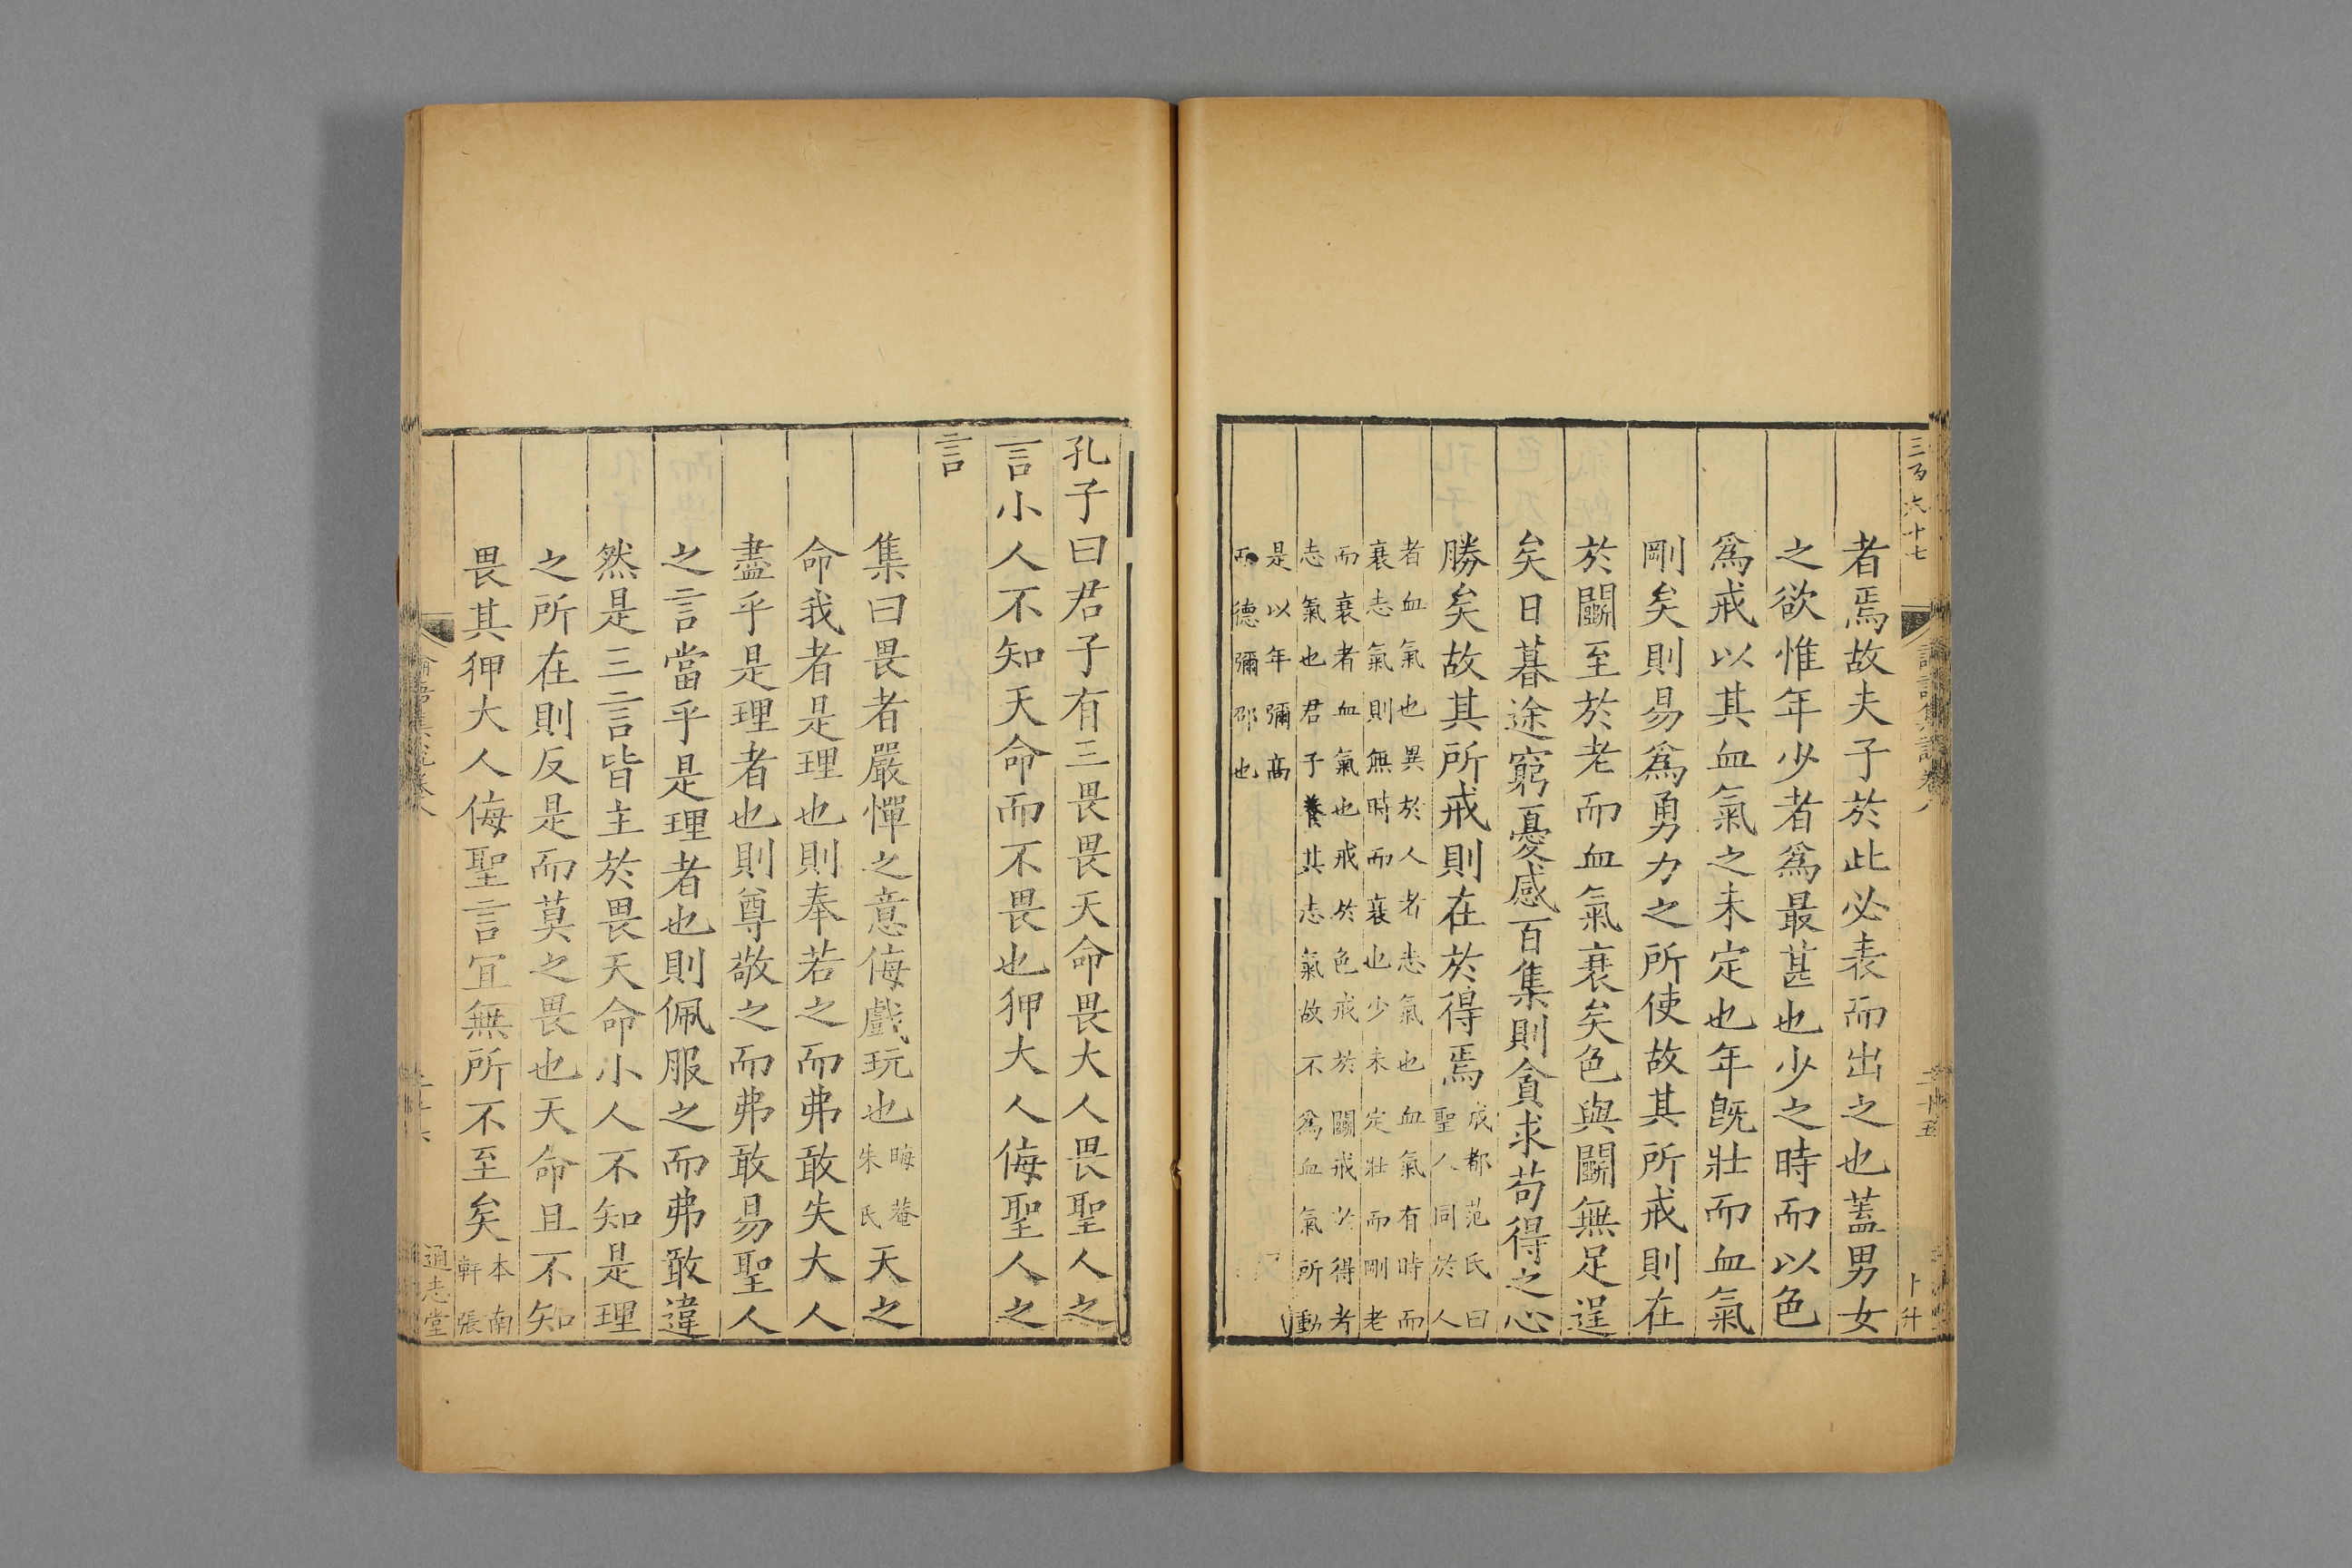 三百六十七
卜升
者焉故夫子於此必表而出之也蓋男女
之欲惟年少者爲最甚也少之時而以色
爲戒以其血氣之未定也年旣壯而血氣
剛矣則易爲勇力之所使故其所戒則在
於鬬至於老而血氣衰矣色與鬬無足逞
矣日暮途窮憂感百集則貪求苟得之心
勝矣故其所戒則在於得焉
成都范氏曰
聖人同於人
者血氣也異於人者志氣也血氣有時而
衰志氣則無時而衰也少未定壯而剛老
而衰者血氣也戒於色戒於鬬戒於得者
志氣也君子養其志氣故不爲血氣所動
是以年彌高
而德彌邵也
孔子曰君子有三畏畏天命畏大人畏聖人之
言小人不知天命而不畏也狎大人侮聖人之
言
集曰畏者嚴憚之意侮戲玩也
晦菴
朱氏
天之
命我者是理也則奉若之而弗敢失大人
盡乎是理者也則尊敬之而弗敢易聖人
之言當乎是理者也則佩服之而弗敢違
然是三言皆主於畏天命小人不知是理
之所在則反是而莫之畏也天命且不知
畏其狎大人侮聖言冝無所不至矣
本南
軒張
論語集說卷八
通志堂